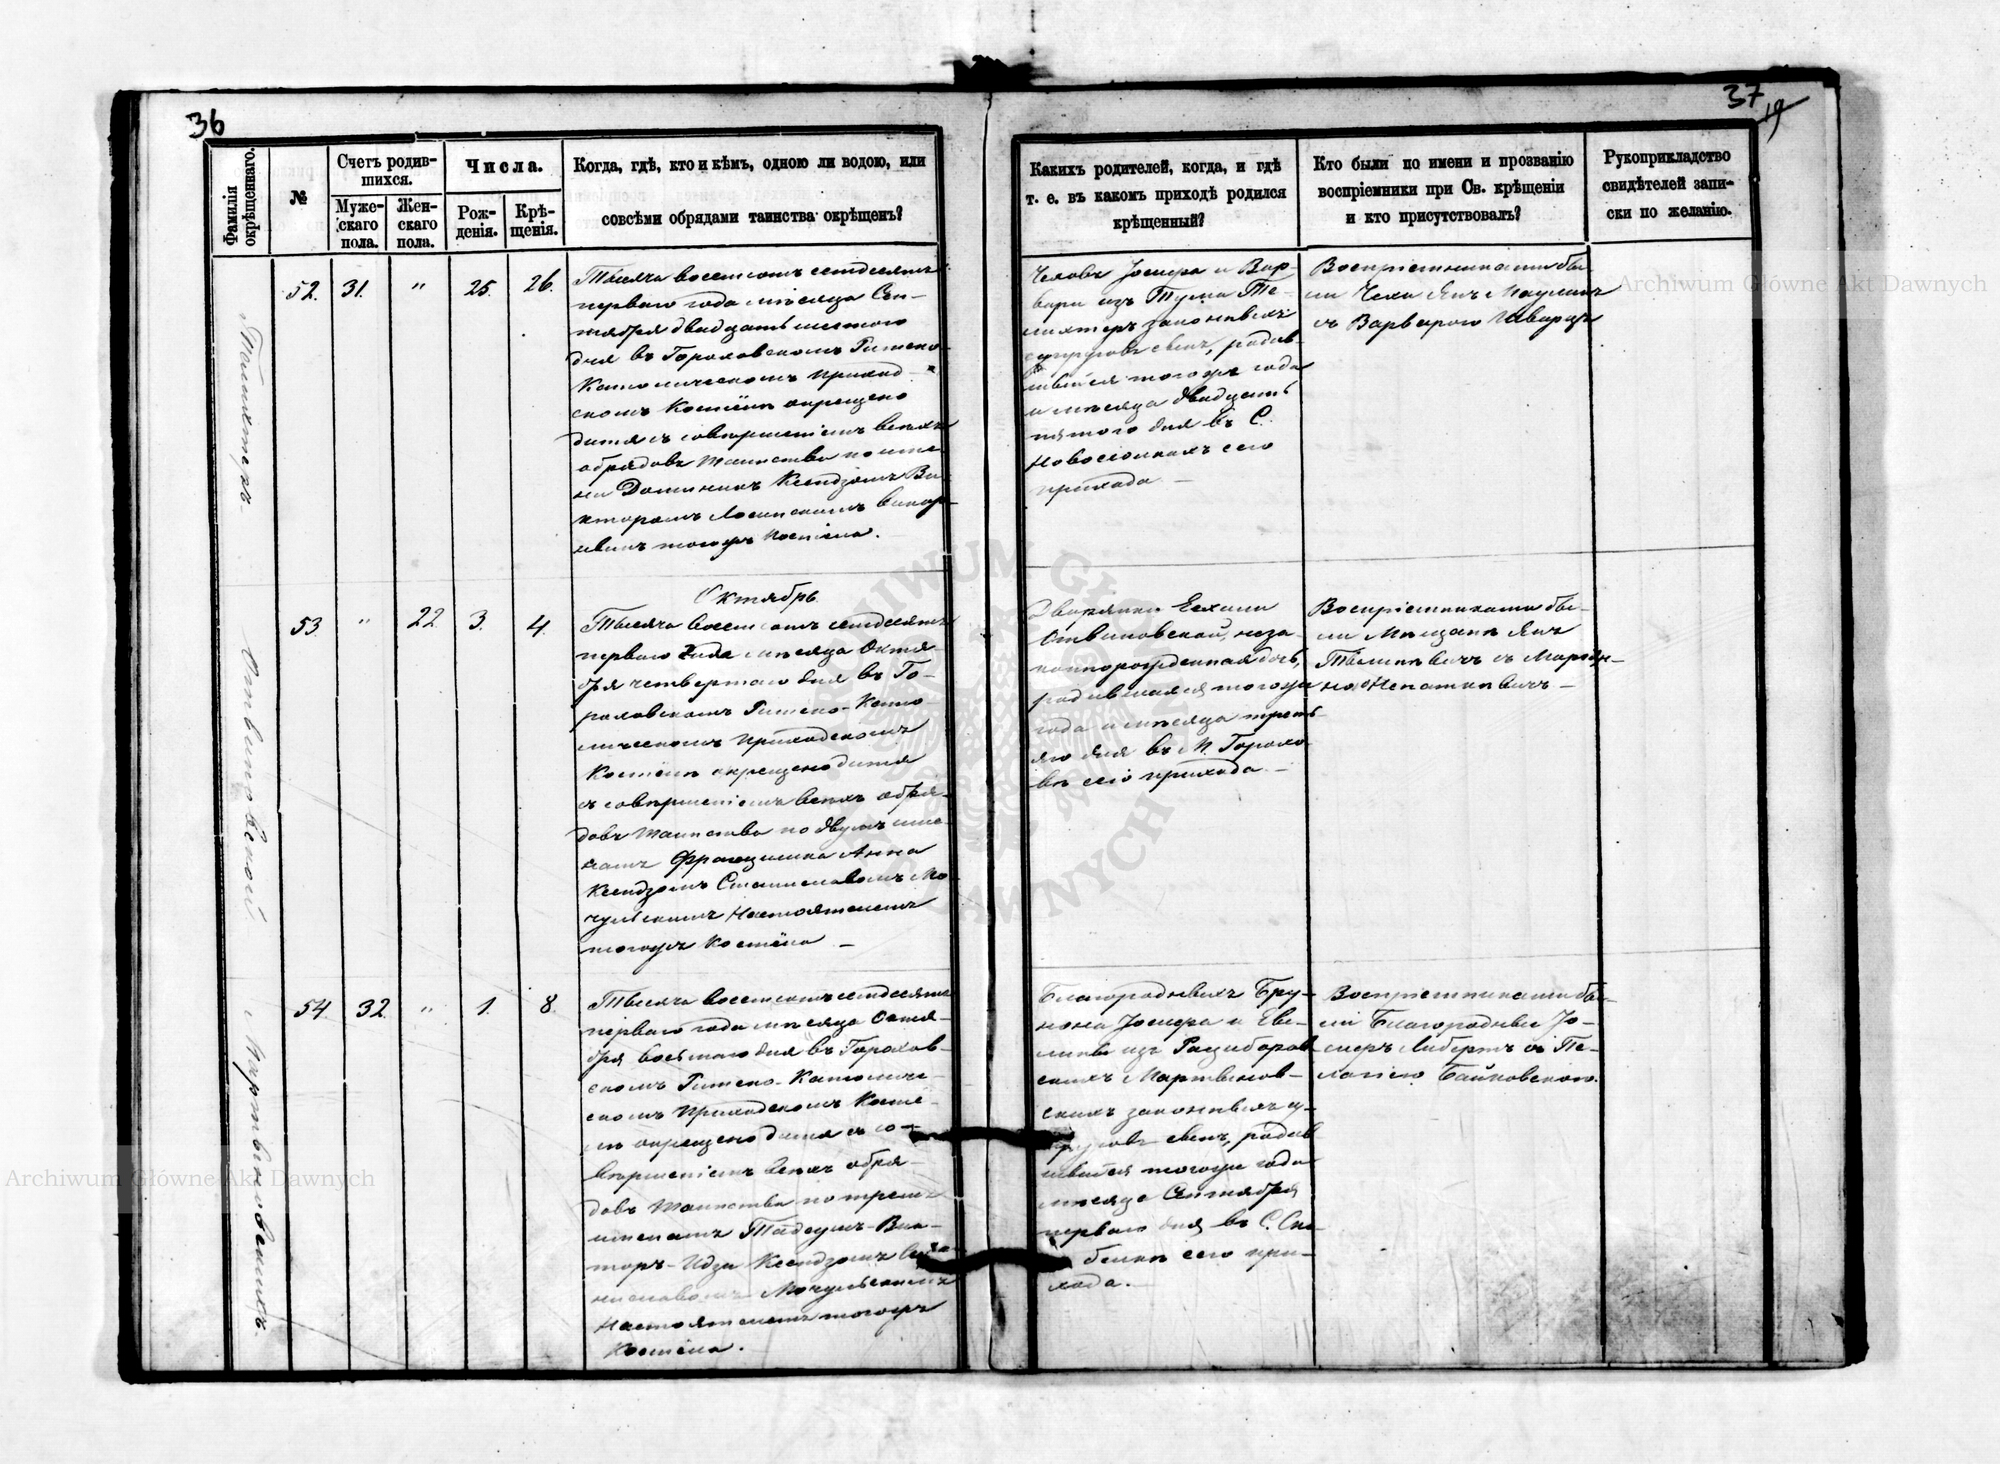 36
Фамилія окрѣщеннаго.
№
Счетъ родив-
шихся.
Муже-
скаго
пола.
Жен-
скаго
пола.
Числа.
Рож-
денія.
Крѣ-
щенія.
Когда, гдѣ, кто и кѣмъ, одною ли водою, или
совсѣми обрядами таинства окрѣщенъ?
52. 31. " 25. 26.
Тысяча восемсотъ семдесятъ
перваго года мѣсяца Сен-
тября двадцать шестого
дня въ Гороховскомъ Римско-
Католическомъ приход-
скомъ Костёлѣ окрещено
дитя съ совершеніемъ всѣхъ
обрядовъ таинства по име-
ни Доминикъ Ксендзомъ Ви-
кторомъ викар-
нымъ тогожъ Костёла.
Октябрь
53. " 22 3. 4.
Тысяча восемсотъ семдесятъ
перваго года мѣсяца Октя-
бря четвертаго дня въ Го-
роховскомъ Римско-Като-
лическомъ Приходскомъ
Костёлѣ окрещено дитя
съ совершеніемъ всѣхъ обря-
довъ таинства по двумъ име-
намъ Францишка Анна
Ксендзомъ Станиславомъ Мо-
чульскимъ Настоятелемъ
тогожъ Костёла —
54. 32. " 1. 8.
Тысяча восемсотъ семдесятъ
перваго года мѣсяца Октя-
бря восьмаго дня въ Горохов-
скомъ Римско-Католиче-
скомъ Приходскомъ Костё-
лѣ окрещено дитя съ со-
вершеніемъ всѣхъ обря-
довъ таинства по тремъ
именамъ Тадеушъ-Вик-
торъ-Идзи Ксендзомъ Ста-
ниславомъ Мочульскимъ
Настоятелемъ тогожъ
Костёла.
37
19
Какихъ родителей, когда, и гдѣ
т. е. въ какомъ приходѣ родился
крѣщенный?
Кто были по имени и прозванію
воспріемники при Св. крѣщеніи
и кто присутствовалъ?
Рукоприкладство
свидѣтелей запи-
ски по желанію.
Чеховъ Іосифа и Вар-
вары изъ
законныхъ
супруговъ сынъ, родив-
шійся тогожъ года
и мѣсяца двадцать
пятого дня въ С.
Новосіолкахъ сего
прихода —
Воспріемниками бы-
ли Чехи Янъ
съ Варварою
Дворянки
неза-
коннорожденная дочь,
родившаяся тогожъ
года и мѣсяца треть-
яго дня въ М. Горохо-
вѣ сего прихода. —
Воспріемниками бы-
ли Мѣщане Янъ
съ Маріян-
ною —
Благородныхъ Бру-
нона Іосифа и Еве-
лины изъ Рациборов-
скихъ Мартынов-
скихъ законныхъ су-
пруговъ сынъ, родив-
шійся тогожъ года
мѣсяца Сентября
перваго дня въ С. Ско-
белкѣ сего при-
хода. —
Воспріемниками бы-
ли Благородные Іо-
сифъ Либертъ съ Пе-
лагіею Байковскою.
Archiwum Główne Akt Dawnych
Archiwum Główne Akt Dawnych